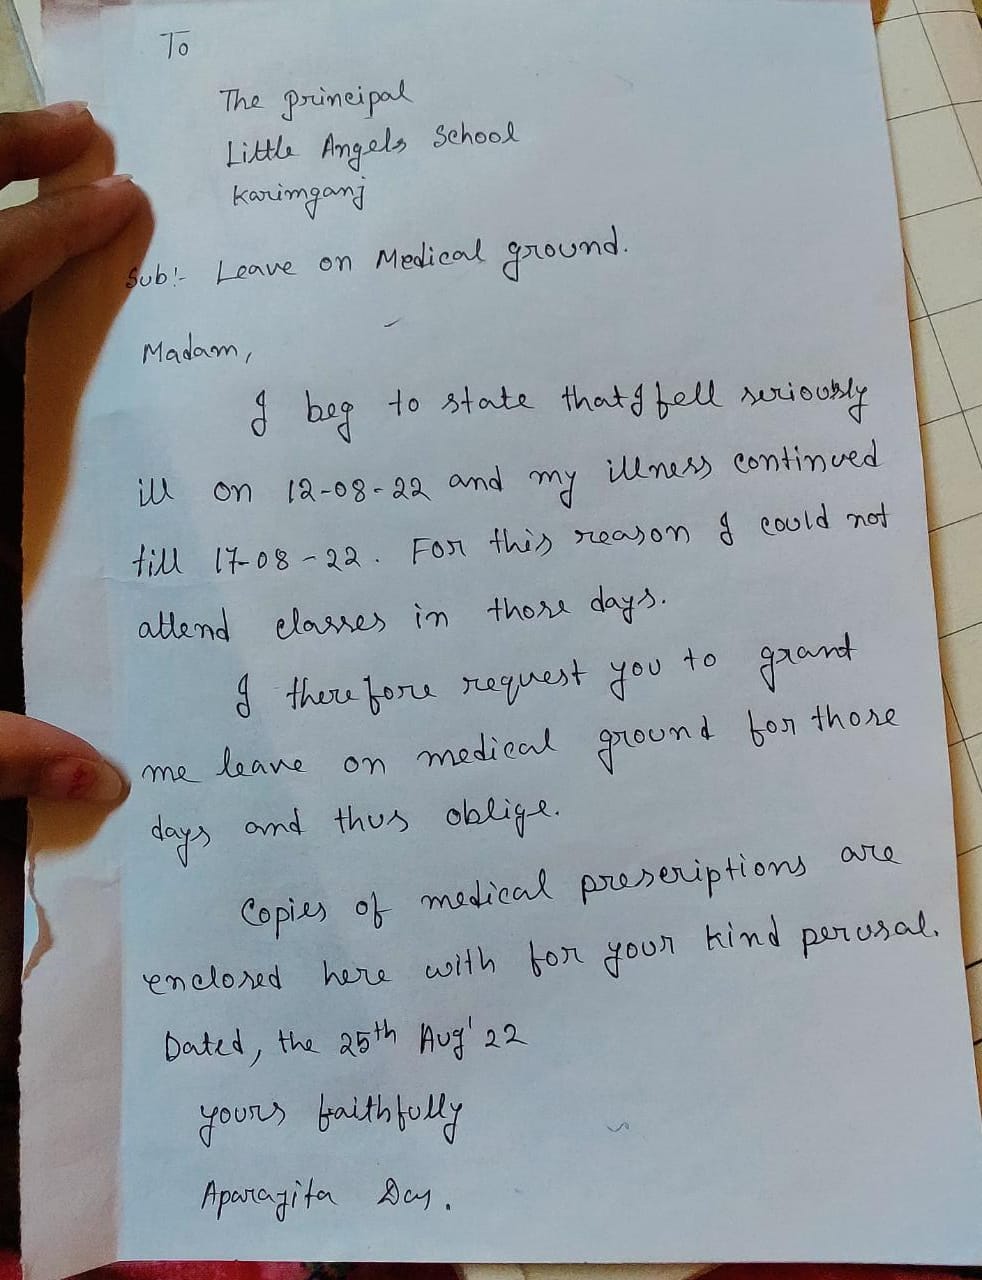 To
The principal
Little Angels School
Karimganj
Sub:- Leave on Medical ground.
Madam,
I beg to state that I fell seriously
ill on 12-08-22 and my illness continued
till 17-08-22. For this reason I could not
attend classes in those days.
I therefore request you to grant
me leave on medical ground for those
days and thus oblige.
Copies of medical prescriptions are
enclosed here with for your kind perusal.
Dated, the 25th Aug' 22
yours faithfully
Aparajita